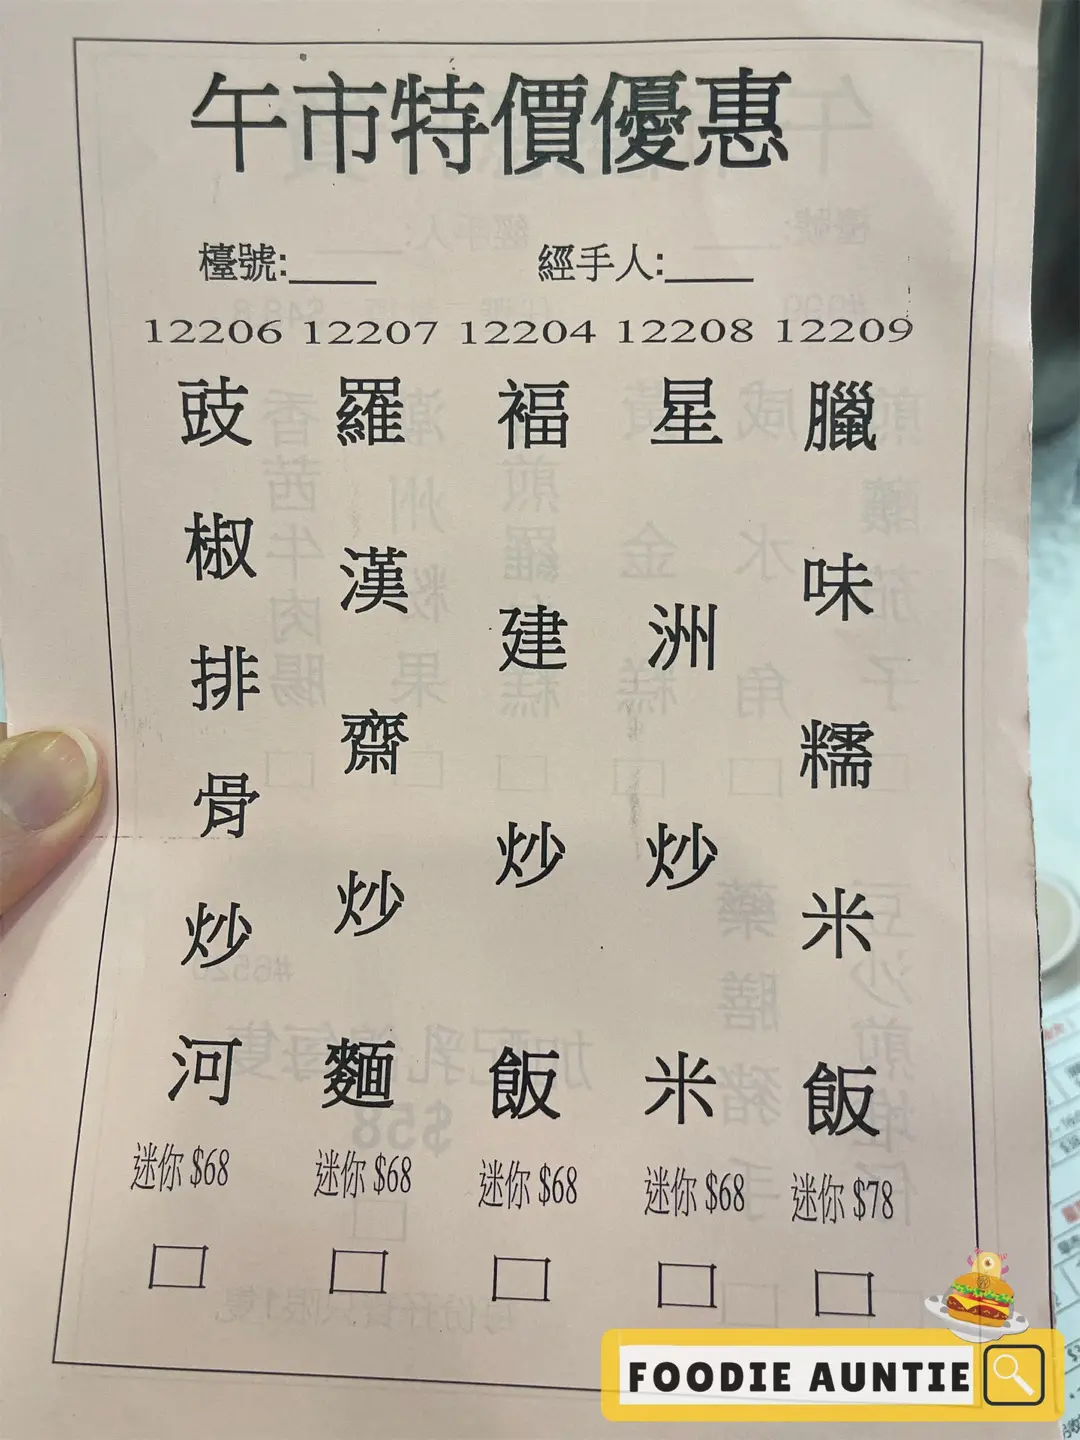 午市特價優惠
檯號:____ 經手人:____
12206 12207 12204 12208 12209
豉椒排骨炒河
羅漢齋炒麵
褔建炒飯
星洲炒米
臘味糯米飯
迷你 $68 迷你 $68 迷你 $68 迷你 $68 迷你 $78
FOODIE AUNTIE